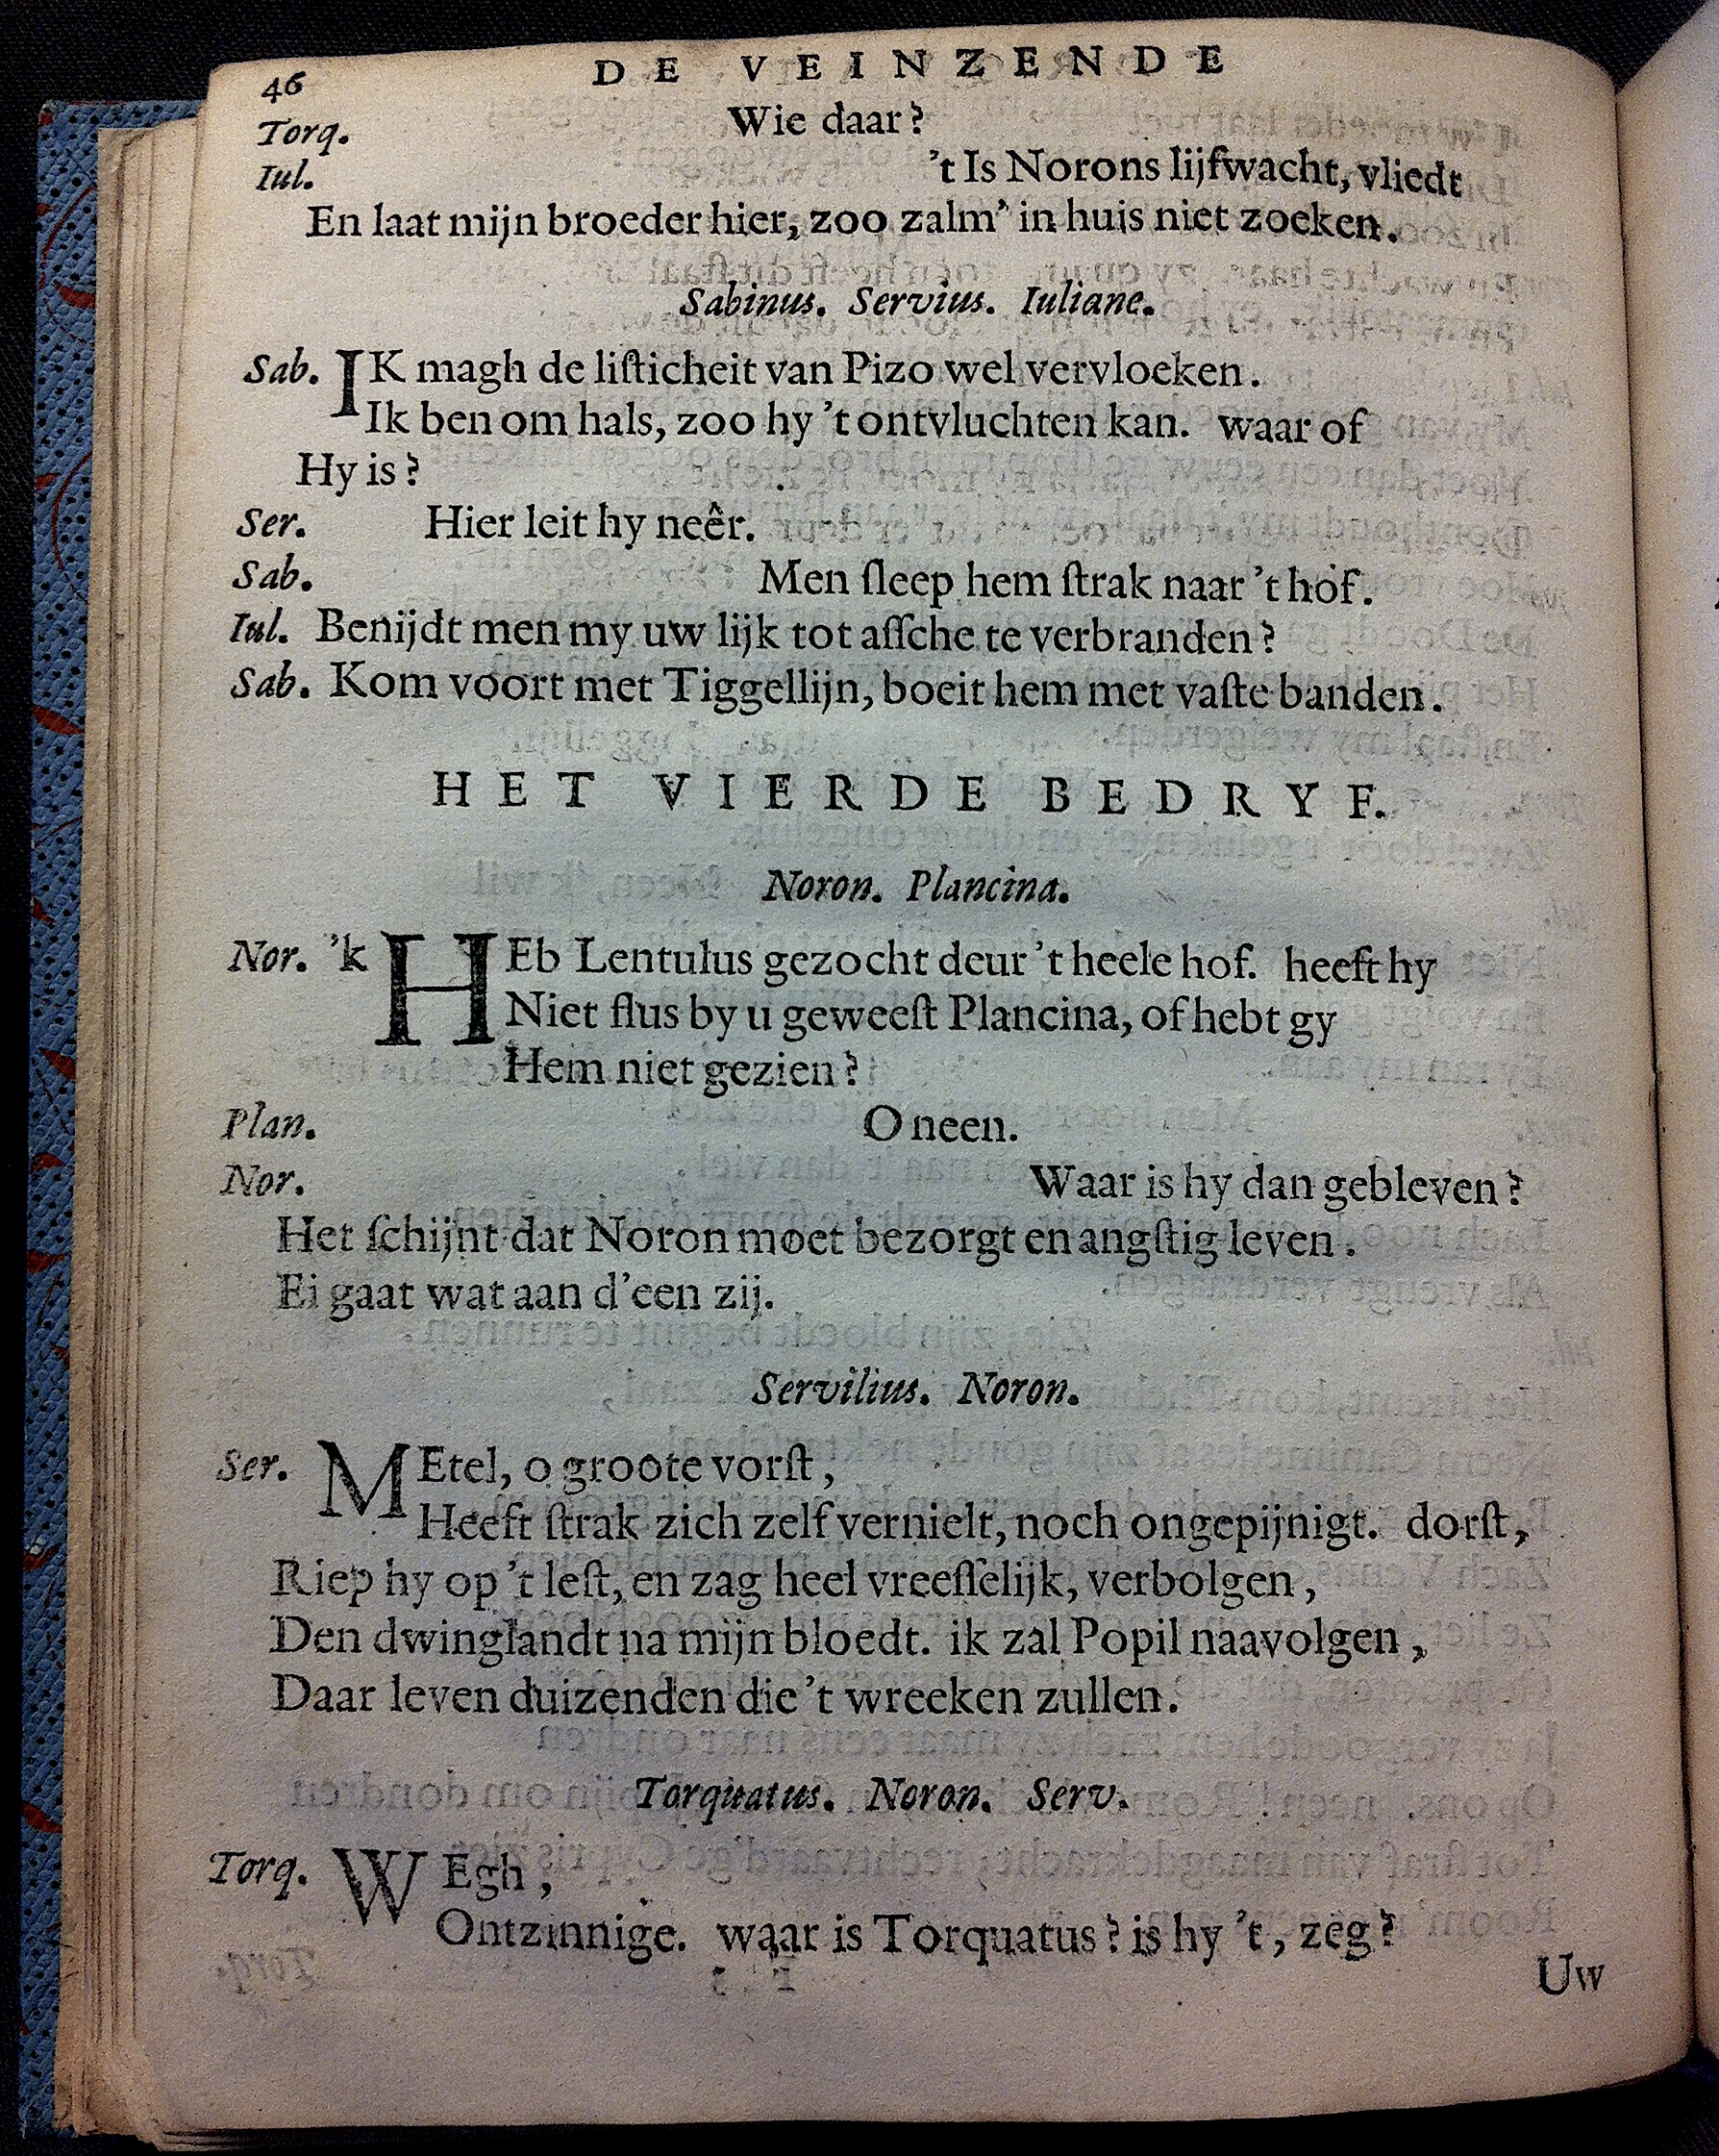 46 DE VEINZENDE
Torq. Wie daar?
Iul. 't Is Norons lijfwacht, vliedt
En laat mijn broeder hier, zoo zalm' in huis niet zoeken.
Sabinus. Servius. Iuliane.
Sab. IK magh de liſticheit van Pizo wel vervloeken.
Ik ben om hals, zoo hy 't ontvluchten kan. waar of
Hy is?
Ser. Hier leit hy neêr.
Sab. Men ſleep hem ſtrak naar 't hof.
Iul. Benijdt men my uw lijk tot aſſche te verbranden?
Sab. Kom voort met Tiggellijn, boeit hem met vaſte banden.
HET VIERDE BEDRYF.
Noron. Plancina.
Nor. 'k HEb Lentulus gezocht deur 't heele hof. heeft hy
Niet flus by u geweeſt Plancina, of hebt gy
Hem niet gezien?
Plan. O neen.
Nor. Waar is hy dan gebleven?
Het ſchijnt dat Noron moet bezorgt en angſtig leven.
Ei gaat wat aan d'een zij.
Servilius. Noron.
Ser. MEtel, o groote vorſt,
Heeft ſtrak zich zelf vernielt, noch ongepijnigt. dorſt,
Riep hy op 't leſt, en zag heel vreeſſelijk, verbolgen,
Den dwinglandt na mijn bloedt. ik zal Popil naavolgen,
Daar leven duizenden die 't wreeken zullen.
Torquatus. Noron. Serv.
Torq. WEgh,
Ontzinnige. waar is Torquatus? is hy 't, zeg?
Uw